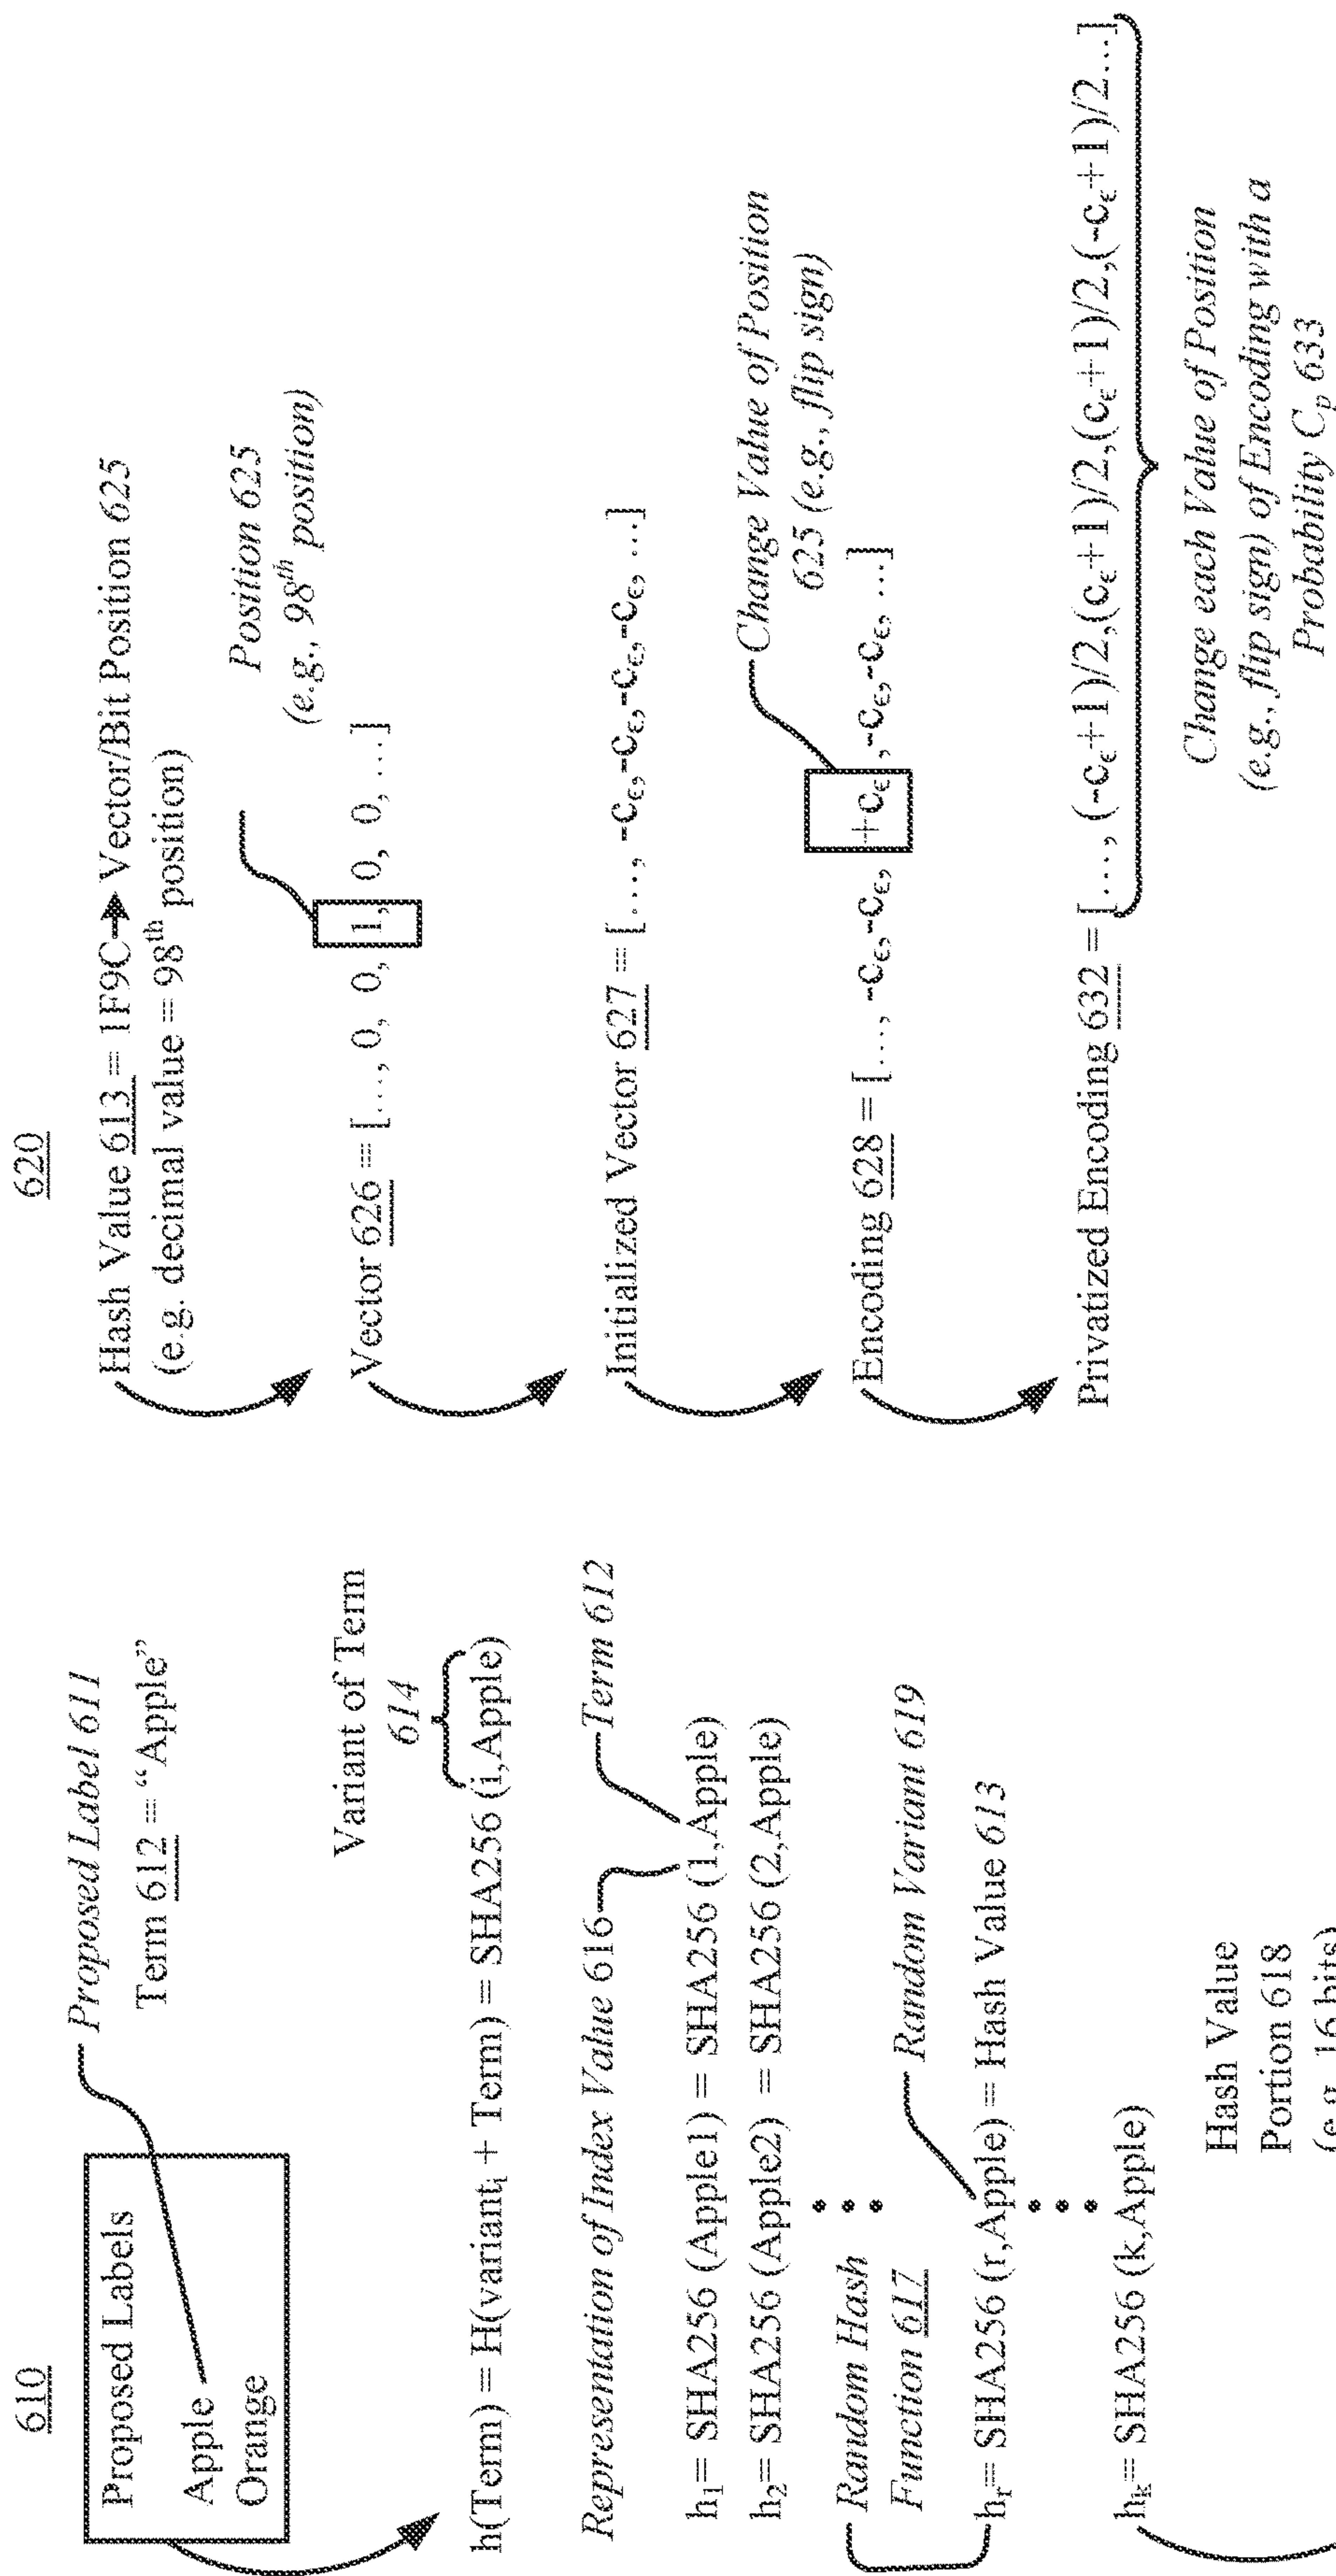 610
Proposed Labels
Apple
Orange
Proposed Label 611
Term 612 = “Apple”
Variant of Term
614
h(Term) = H(variantᵢ + Term) = SHA256 (i,Apple)
Representation of Index Value 616
Term 612
h₁= SHA256 (Apple1) = SHA256 (1,Apple)
h₂= SHA256 (Apple2) = SHA256 (2,Apple)
Random Hash
Function 617
Random Variant 619
hᵣ= SHA256 (r,Apple) = Hash Value 613
hₖ= SHA256 (k,Apple)
Hash Value
Portion 618
(e.g., 16 bits)
620
Hash Value 613 = 1F9C→Vector/Bit Position 625
(e.g. decimal value = 98ᵗʰ position)
Position 625
(e.g., 98ᵗʰ position)
Vector 626 = [..., 0, 0, 1, 0, 0, ...]
Initialized Vector 627 = [..., -cϵ, -cϵ, -cϵ, -cϵ, -cϵ, ...]
Change Value of Position
625 (e.g., flip sign)
Encoding 628 = [..., -cϵ, -cϵ, +cϵ ,-cϵ, -cϵ, ...]
Privatized Encoding 632 = [..., (-cϵ+1)/2,(cϵ+1)/2,(cϵ+1)/2,(-cϵ+1)/2...]
Change each Value of Position
(e.g., flip sign) of Encoding with a
Probability Cₚ 633